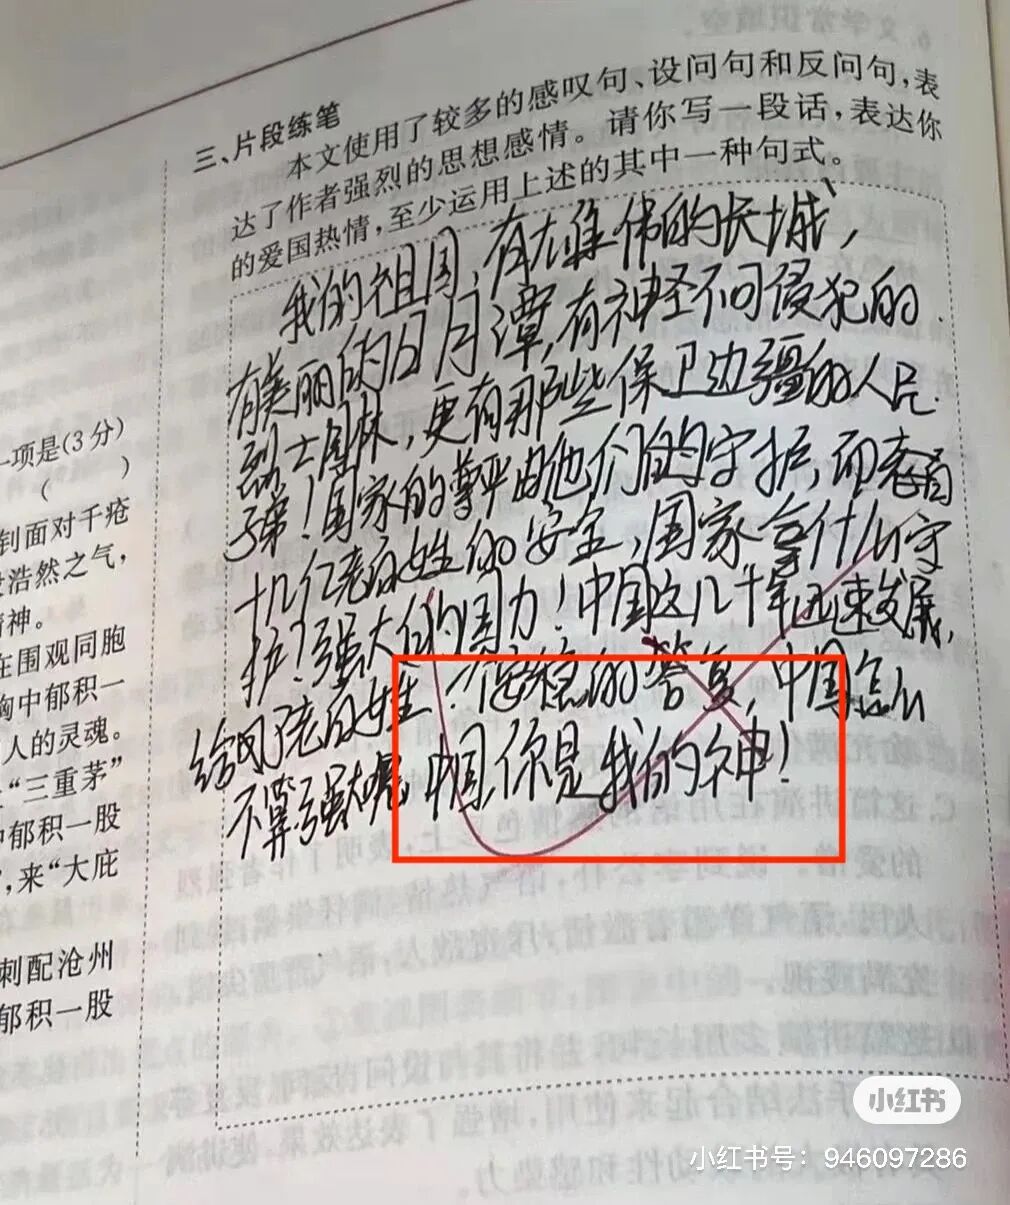 三、片段练笔
本文使用了较多的感叹句、设问句和反问句，表
达了作者强烈的思想感情。请你写一段话，表达你
的爱国热情，至少运用上述的其中一种句式。
我的祖国，有雄伟的长城，
有美丽的日月潭，有神圣不可侵犯的
烈士园林，更有那些保卫边疆的人民
子弟！国家的尊严由他们的守护，而
十几亿老百姓的安全，国家拿什么守
护？强大的国力！中国这几十年迅速发展，
给了老百姓 安稳的答复，中国怎么
不算强大呢，中国，你是我的神！
一项是(3分)
(    )
到面对千疮
浩然之气，
精神。
在围观同胞
胸中郁积一
人的灵魂。
“三重茅”
中郁积一股
，来“大庇
刺配沧州
郁积一股
小红书
小红书号：946097286